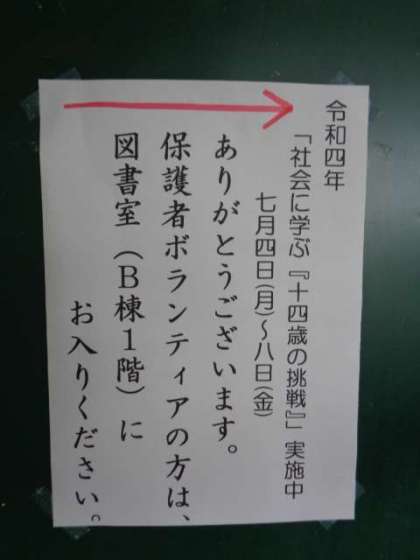 令和四年
「社会に学ぶ『十四歳の挑戦』」実施中
七月四日(月)～八日(金)
ありがとうございます。
保護者ボランティアの方は、
図書室（B棟1階）に
お入りください。